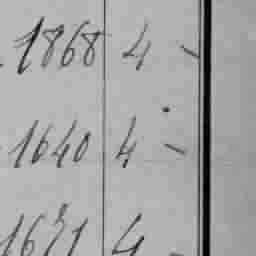 1868 4 -
1640 4 -
1671 4 -